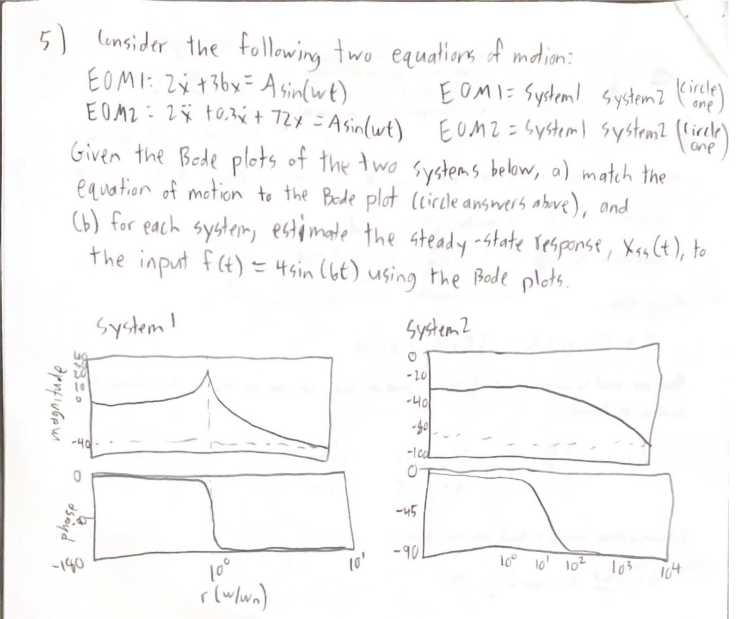 5) Consider the following two equations of motion:
EOM1: 2ẋ + 36x = A sin(wt) EOM1 = System1 system2 (circle one)
EOM2: 2ẍ + 0.3ẋ + 72x = A sin(wt) EOM2 = System1 system2 (circle one)
Given the Bode plots of the two systems below, a) match the
equation of motion to the Bode plot (circle answers above), and
(b) for each system, estimate the steady-state response, Xss(t), to
the input f(t) = 4sin(6t) using the Bode plots.
System 1
System 2
magnitude
0
-40
0
phase
-180
10⁰
10¹
r (w/wn)
0
-20
-40
-80
-100
0
-45
-90
10⁰ 10¹ 10² 10³ 10⁴